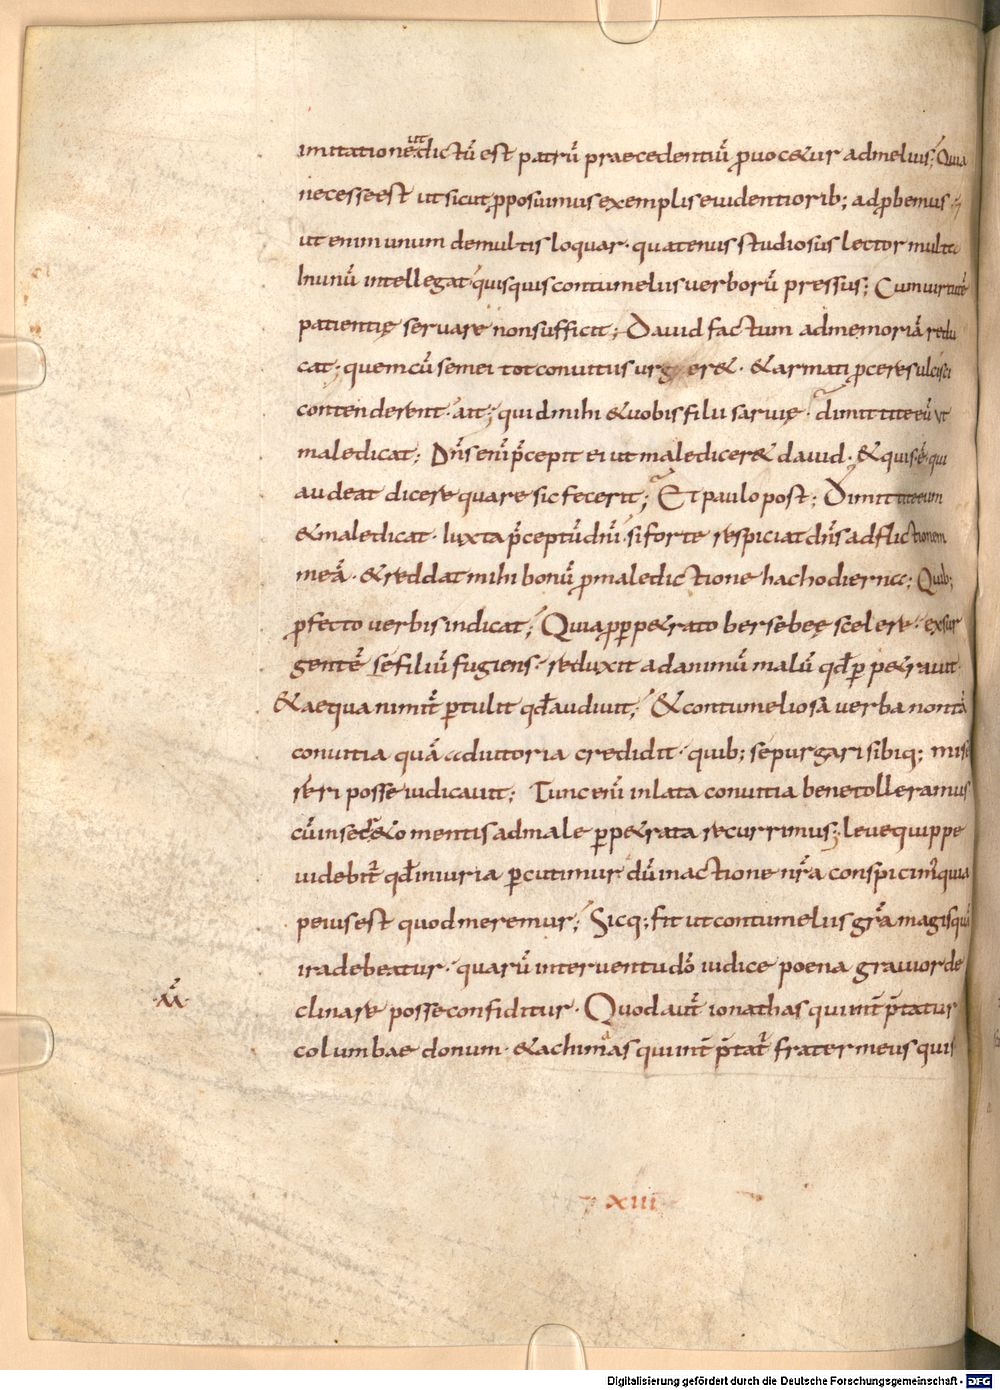 imitatione ut dictū est patrū praecedentiū ꝓuocetur admelius; Quia
necesse est ut sicut ꝓposuimus exemplis euidentiorib; adꝓbemus
ut enim unum demultis loquar· quatenus studiosus lector multa
Inunū intellegat quisquis contumeliis uerborū pressus; Cum uirtutē
patientię seruare non sufficit; Dauid factum ad memoriā redu
cat; quem cū semei tot conuitiis urgeret· & armati ꝓceres ulcisci
contenderent· ait; quid mihi & uobis filii saruię· dimittite eū ut
maledicat; Dn̄s enī p̄cepit ei ut malediceret dauid· & quis ē qui
audeat dicere quare sic fecerit; Et paulo post; Dimittite eum
& maledicat· Iuxta p̄ceptū dn̄i· si forte respiciat dn̄s adflictionem
meā· & reddat mihi bonū ꝓ maledictione hac hodierna; Quib;
ꝓfecto uerbis indicat; Quia ꝓ ꝑpetrato bersebeę scelere· exsur
gentē se filiū fugiens· reduxit ad animū malū qd̄ ꝑpetrauit·
& aequanimit̄ ꝑtulit qd̄ audiuit; & contumeliosa uerba non tā
conuitia quā adiutoria credidit· quib; se purgari sibiq; mise
reri posse iudicauit; Tunc enī inlata conuitia bene tolleramus
cū in secreto mentis ad male ꝑpetrata recurrimus; leue quippe
uidebit̄ qd̄ iniuria ꝑcutimur dū in actione nr̄a conspicim' quia
peius est quod meremur; Sicq; fit ut contumeliis gr̄a magis quā
ira debeatur· quarū interuentu dō iudice poena grauior de
clinare posse confiditur· Quod aut̄ ionathas qui int̄p̄tatur
columbae donum· & achimas qui int̄p̄tat̄ frater meus quis
xiii
Digitalisierung gefördert durch die Deutsche Forschungsgemeinschaft - DFG